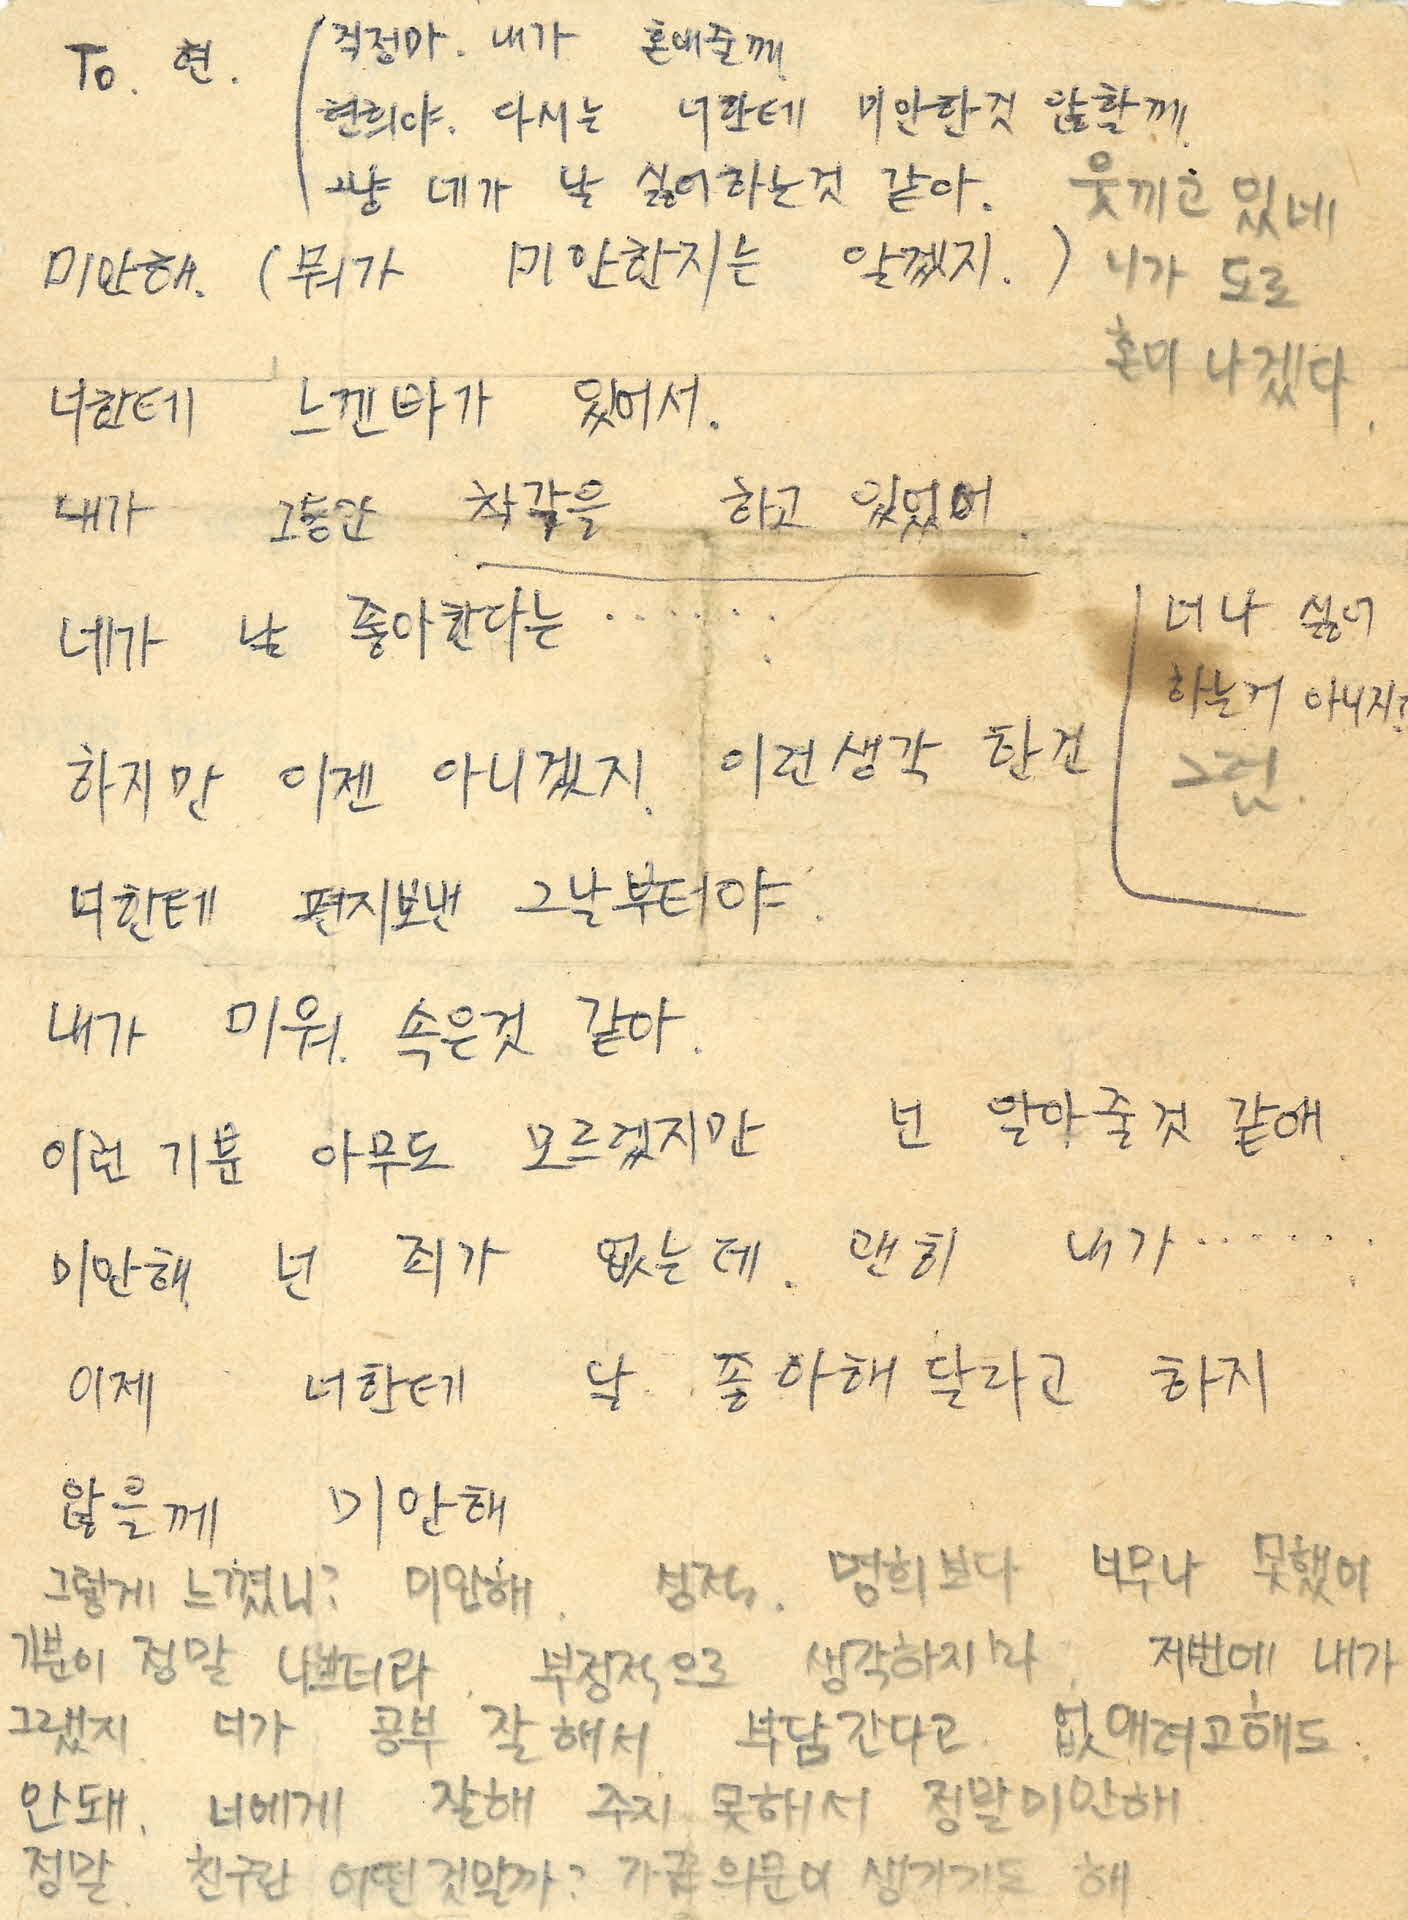 To. 현.
걱정마. 내가 혼내줄께.
현희야. 다시는 너한테 미안한것 않할께.
그냥 네가 날 싫어하는것 같아.
웃끼고 있네
니가 도로
혼미 나겠다.
미안해. (뭐가 미안한지는 알겠지.)
너한테 느낀바가 있어서.
내가 그동안 착각을 하고 있었어.
네가 날 좋아한다는 ······.
하지만 이젠 아니겠지. 이런생각 한건
너한테 편지보낸 그날부터야.
너 나 싫어
하는거 아니지?
그럼.
내가 미워. 속은것 같아.
이런 기분 아무도 모르겠지만 넌 알아줄것 같애.
미안해. 넌 죄가 없는데. 괜히 내가 ······.
이제 너한테 날 좋아해달라고 하지
않을께 미안해
그렇게 느꼈니? 미안해. 성적. 명희보다 너무나 못했어
기분이 정말 나쁘더라. 부정적으로 생각하지마. 저번에 내가
그랬지. 너가 공부 잘해서 부담간다고. 없애려고해도.
안돼. 너에게 잘해 주지 못해서 정말미안해
정말. 친구란 어떤것일까? 가끔 의문이 생기기도 해